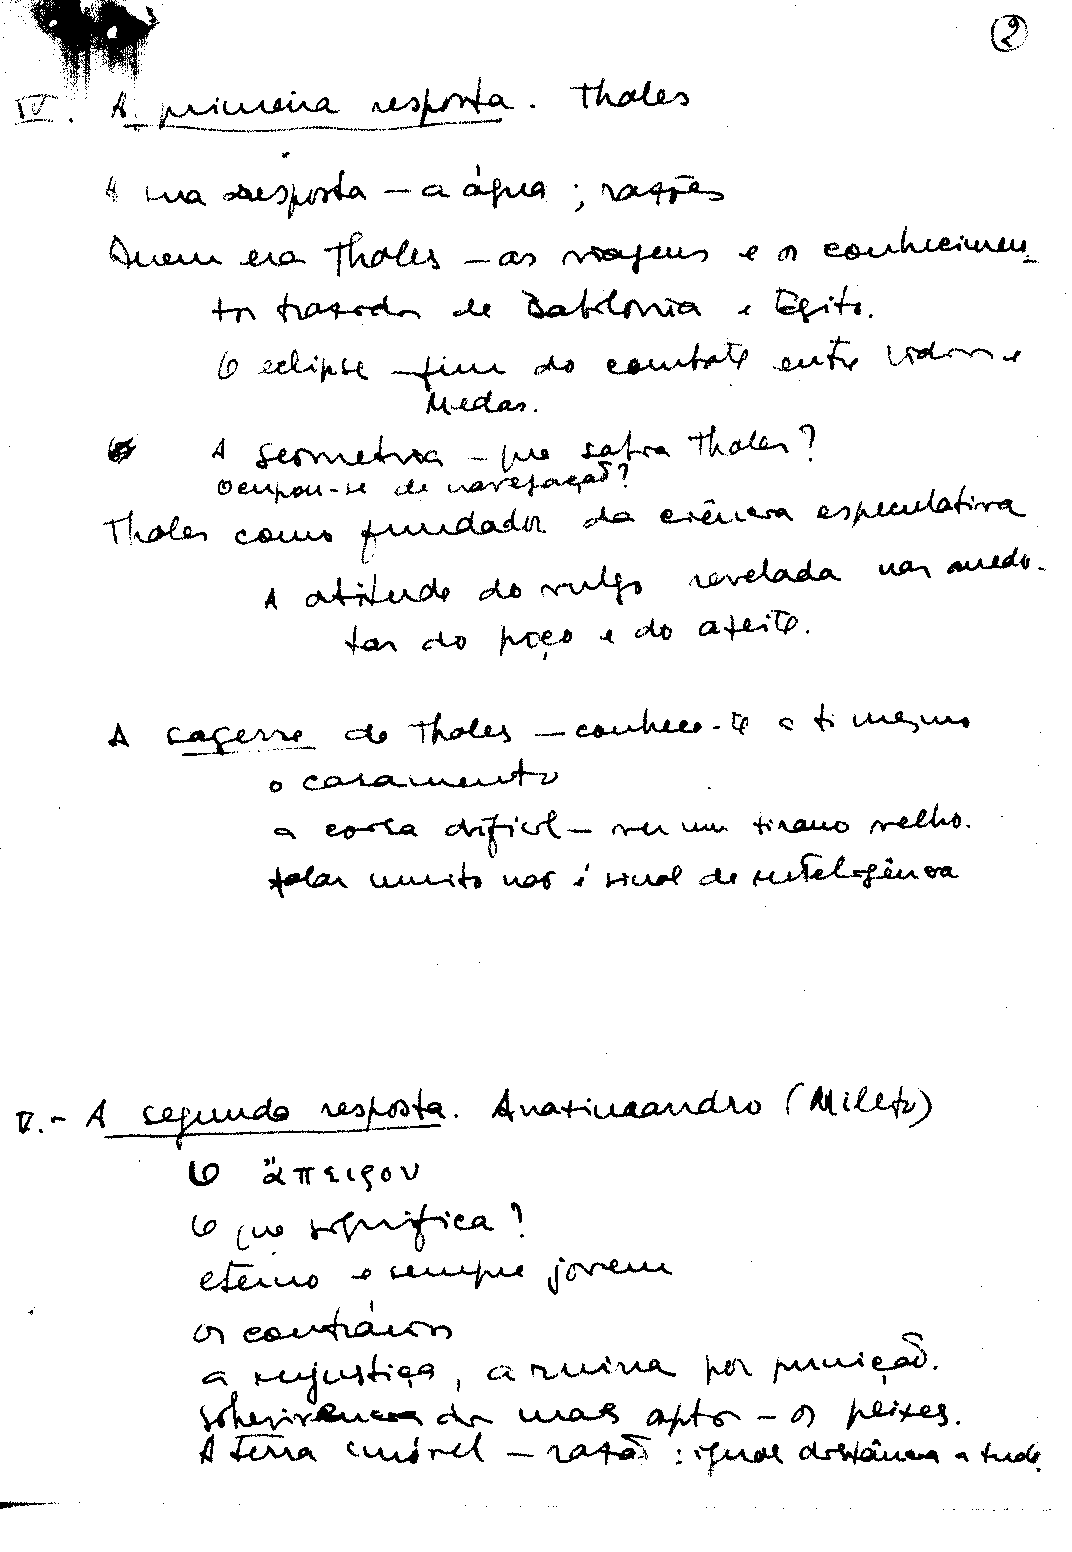 2
IV. A primeira resposta. Thales
A sua resposta – a água ; razões
Quem era Thales – as viagens e os conhecimen-
tos trazidos de Babilonia e Egito.
O eclipse – fim do combate entre Lidios e
Medas.
A geometria – que sabia Thales?
Ocupou-se de navegação?
Thales como fundador da ciência especulativa
A atitude do vulgo revelada nas anedo-
tas do poço e do azeite.
A sagesse de Thales – conhece-te a ti mesmo
o casamento
a coisa dificil – ver um tirano velho.
falar muito não é sinal de inteligência
V. – A segunda resposta. Anaximandro (Mileto)
O ἄπειρον
O que significa?
eterno e sempre jovem
os contrários
a injustiça, a ruina por punição.
sobrevivencia do mais apto – os peixes.
A terra imóvel – razão : igual distância a tudo.